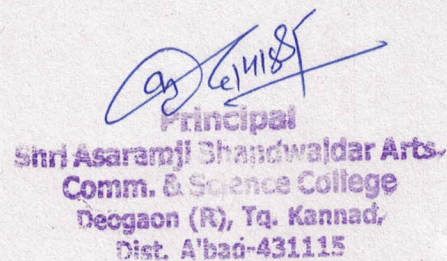 Principal
Shri Asaramji Bhandwaldar Arts
Comm. & Science College
Deogaon (R), Tq. Kannad,
Dist. A'bad-431115